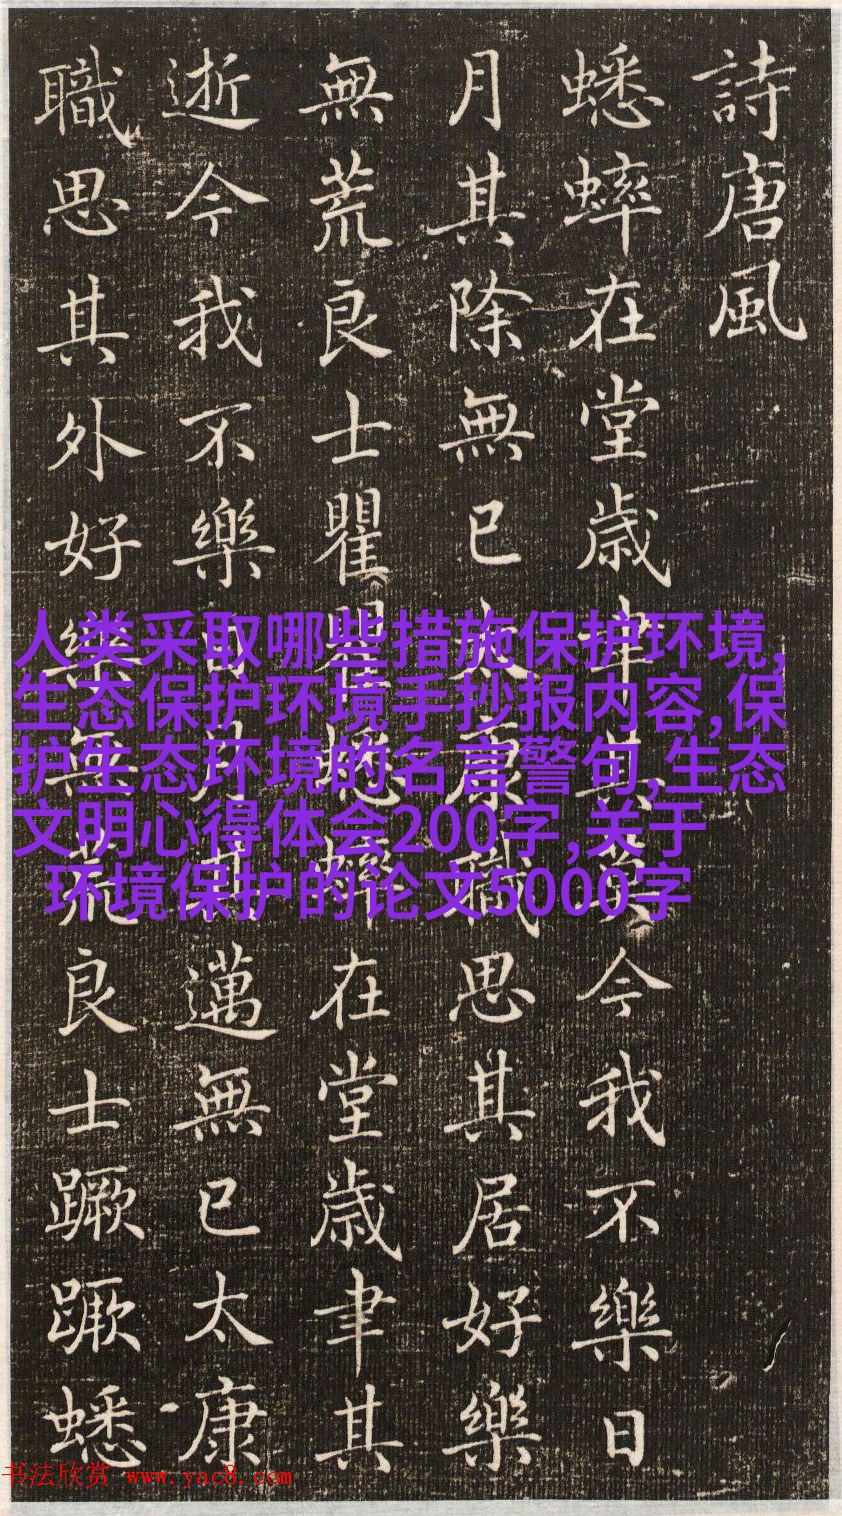 詩唐風
蟋蟀在堂歲聿其莫今我不樂日
月其除無已太康職思其居好樂
無荒良士瞿瞿蟋蟀在堂歲聿其
逝今我不樂日月其邁無已太康
職思其外好樂無荒良士蹶蹶蟋
人类采取哪些措施保护环境,
生态保护环境手抄报内容,保
护生态环境的名言警句,生态
文明心得体会200字,关于
环境保护的论文5000字
书法欣赏 www.yac8.com